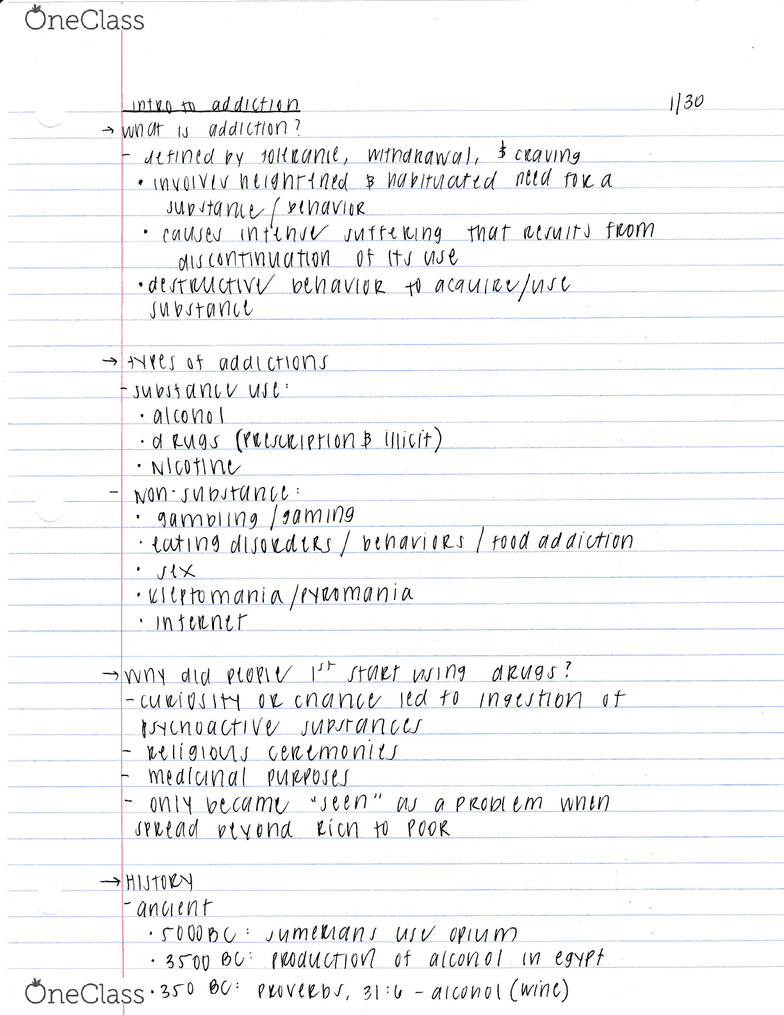 OneClass
intro to addiction 1/30
→ what is addiction?
- defined by tolerance, withdrawal, & craving
• involves heightened & habituated need for a
substance/behavior
• causes intense suffering that results from
discontinuation of its use
• destructive behavior to acquire/use
substance
→ types of addictions
- substance use:
• alcohol
• drugs (prescription & illicit)
• nicotine
- non-substance:
• gambling/gaming
• eating disorders/behaviors/food addiction
• sex
• kleptomania/pyromania
• internet
→ why did people 1st start using drugs?
- curiosity or chance led to ingestion of
psychoactive substances
- religious ceremonies
- medicinal purposes
- only became "seen" as a problem when
spread beyond rich to poor
→ HISTORY
- ancient
• 5000 BC: sumerians use opium
• 3500 BC: production of alcohol in egypt
OneClass • 350 BC: proverbs, 31:6 - alcohol (wine)